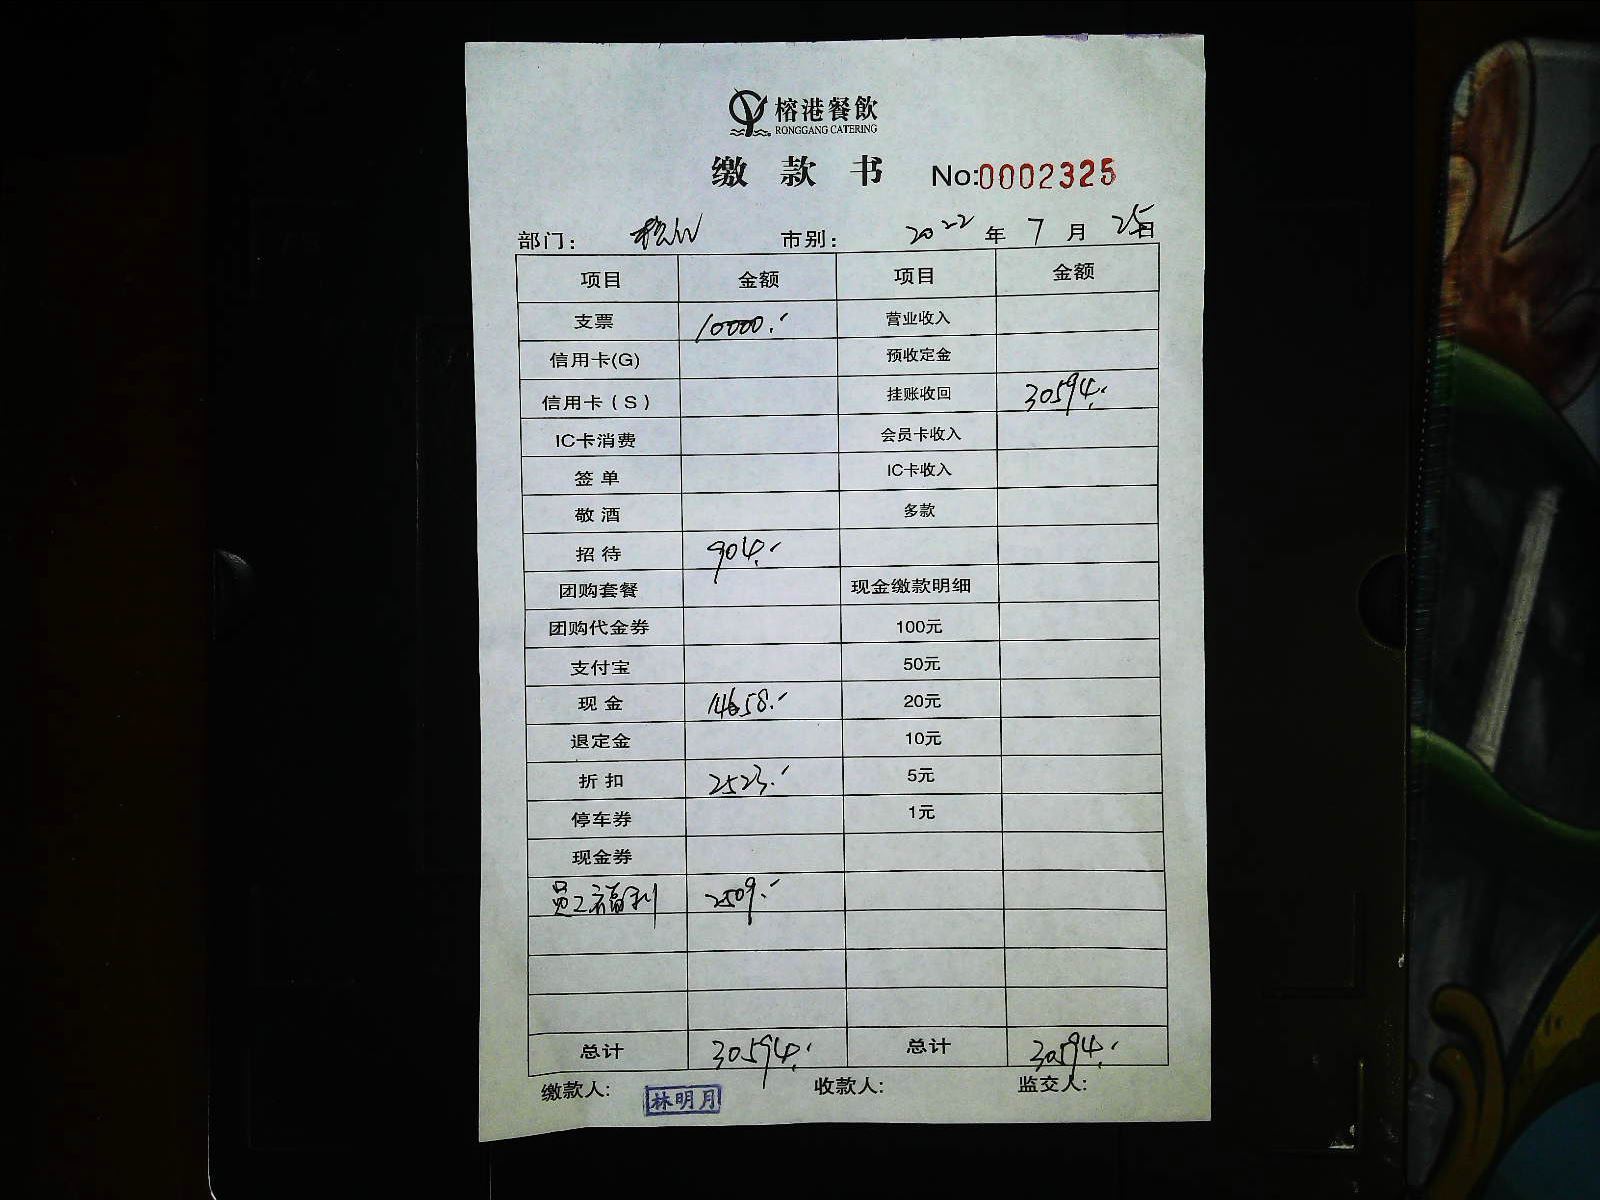 榕港餐飲
RONGGANG CATERING
缴款书 No:0002325
部门: 市别: 2022年7月25日
项目 金额 项目 金额
支票 10000.- 营业收入
信用卡(G) 预收定金
信用卡(S) 挂账收回 30594.-
IC卡消费 会员卡收入
签单 IC卡收入
敬酒 多款
招待 904.-
团购套餐 现金缴款明细
团购代金券 100元
支付宝 50元
现金 14658.- 20元
退定金 10元
折扣 2523.- 5元
停车券 1元
现金券
员工福利 2509.-
总计 30594.- 总计 30594.-
缴款人: 林明月 收款人: 监交人: